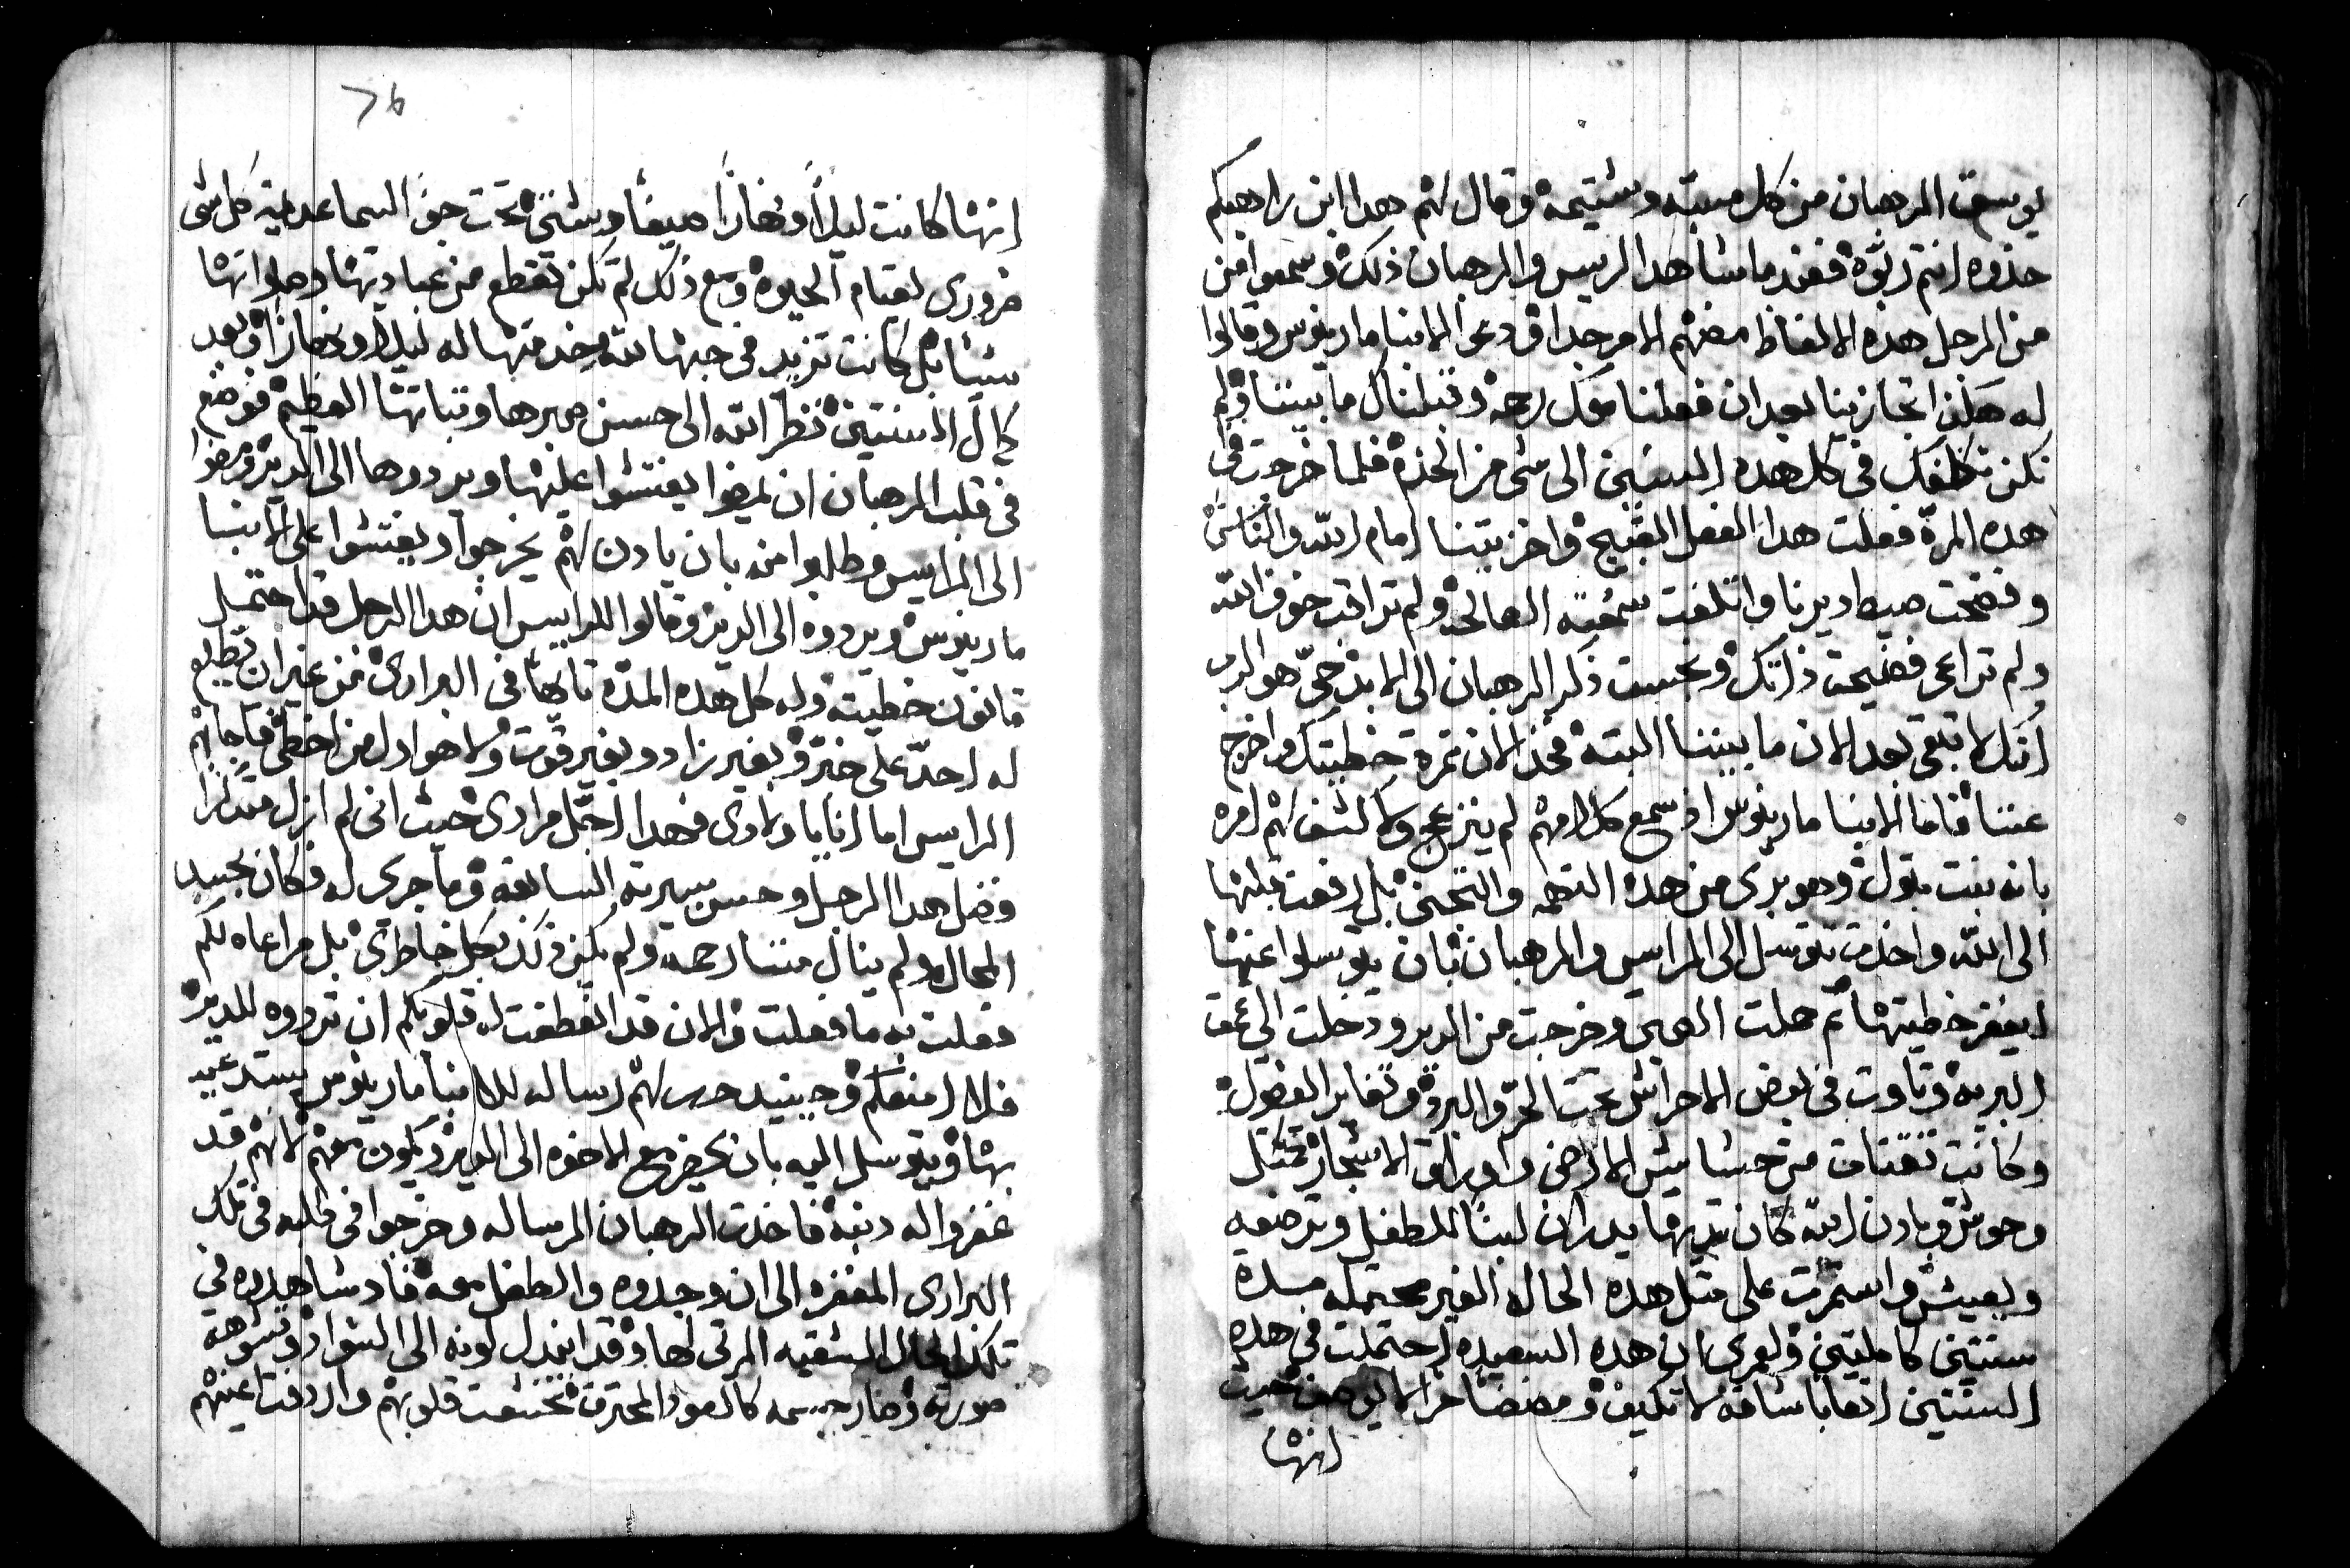 يوسق الرهبان من كل مسبته وشتيمه وقال لهم هدا ابن راهبكم
خذوه انتم ربّوه فعند ما شاهد الريس والرهبان ذلك وسمعوا من
من الرجل هذه الالفاظ مضهم الامر جدا ودعوا الانبا مارينوس وقالوا
له هكذا تجازينا بعد ان فعلنا معك رحمه وقبلناك ما بيننا ولم
نكن نكلفك في كل هده السنين الى شى من الخدم فلما خرجت في
هده المرّة فعلت هدا الفعل القبيح واخزيتنا امام الله والناس
وفضحت صيط ديرنا واتلفت سمعته الصالحه ولم تراقب خوف الله
ولم تراعى فضيحة ذاتك وبخست ذكر الرهبان الى الابد حىّ هو الرب
انك لا تبقى بعد الان ما بيننا البته فخذ الان ثمرة خطيتك واخرج
عننا فاما الانبا مارينوس اذ سمع كلامهم لم ينزعج ولا كشف لهم امره
بانه بنت بتول وهو برى من هذه التهمه والتجنى بل رفعت قلبها
الى الله واخذت تتوسل الى الرايس والرهبان بان يتوسلوا عنها
ليغفر خطيتها ثم حملت الصبى وخرجت من الدير ودخلت الى عمق
البريه وتاوت في بعض الاحراش تحت الحرّ والبرد وتغاير الفصول
وكانت تقتات من حشايش الارض واوراق الاشجار كمثل
وحوش وباذن الله كان ثديها يدران لبناً للطفل وترضعه
ويعيش واستمرت على مثل هده الحال الغير محتمله مدة
سنتين كاملتين ولعمرى ان هده السعيده احتملت في هده
السنتين اتعابا شاقه لا تكيف ومضضاً مراً لا يوصف حيث
انها
76
انها كانت ليلاً ونهاراً صيفا وشتى تحت جوّ السما عديمة كل شى
ضرورى لقيام الحيوه ومع ذلك لم تكن تقطع من عبادتها وصلواتها
شيا بل كانت تزيد في حبها لله وخدمتها له ليلا ونهاراً وبعد
كمال السنتين نظر الله الى حسن صبرها وثباتها العظيم فوضع
في قلب الرهبان ان يمضوا يفتشوا عليها ويردوها الى الدير ومضوا
الى الرايس وطلبوا منه بان يادن لهم يخرجوا ويفتشوا على الانبا
مارينوس ويردوه الى الدير وقالوا للرايس ان هدا الرجل قد احتمل
قانون خطيته وله كل هده المدّة تايهاً في البرارى من غير ان يطلع
له احدّ على خبر وبغير زاد وبغير قوت ولا هو اول من اخطى فاجابهم
الرايس اما انا يا ولادى فهدا اجمل مرادى حيث انى لم ازل متذكراً
فضل هدا الرجل وحسن سيرته السابقه وما جرى له فكان بحسب
المحال ولم ينال مننا رحمه ولم يكن ذلك بكل خاطرى بل مراعاه لكم
فعلت به ما فعلت والان قد انعطفت له قلوبكم ان تردوه للدير
فلا امنعكم وحينيد حرر لهم رساله للانبا مارينوس يستدعيه
بها ويتوسل اليه بان يحضر مع الاخوه الى الدير ويكون معهم لانهم قد
غفروا له دنبه فاخذت الرهبان الرساله وخرجوا في طلبه في تلك
البرارى المقفره الى ان وجدوه والطفل معه فاد شاهدوه في
تلك الحال الشقيه المرثى لها وقد ابتدل لونه الى السواد وتشوهة
صورته وصار جسمه كالعود المحترق تخشعت قلوبهم واذرفت اعينهم